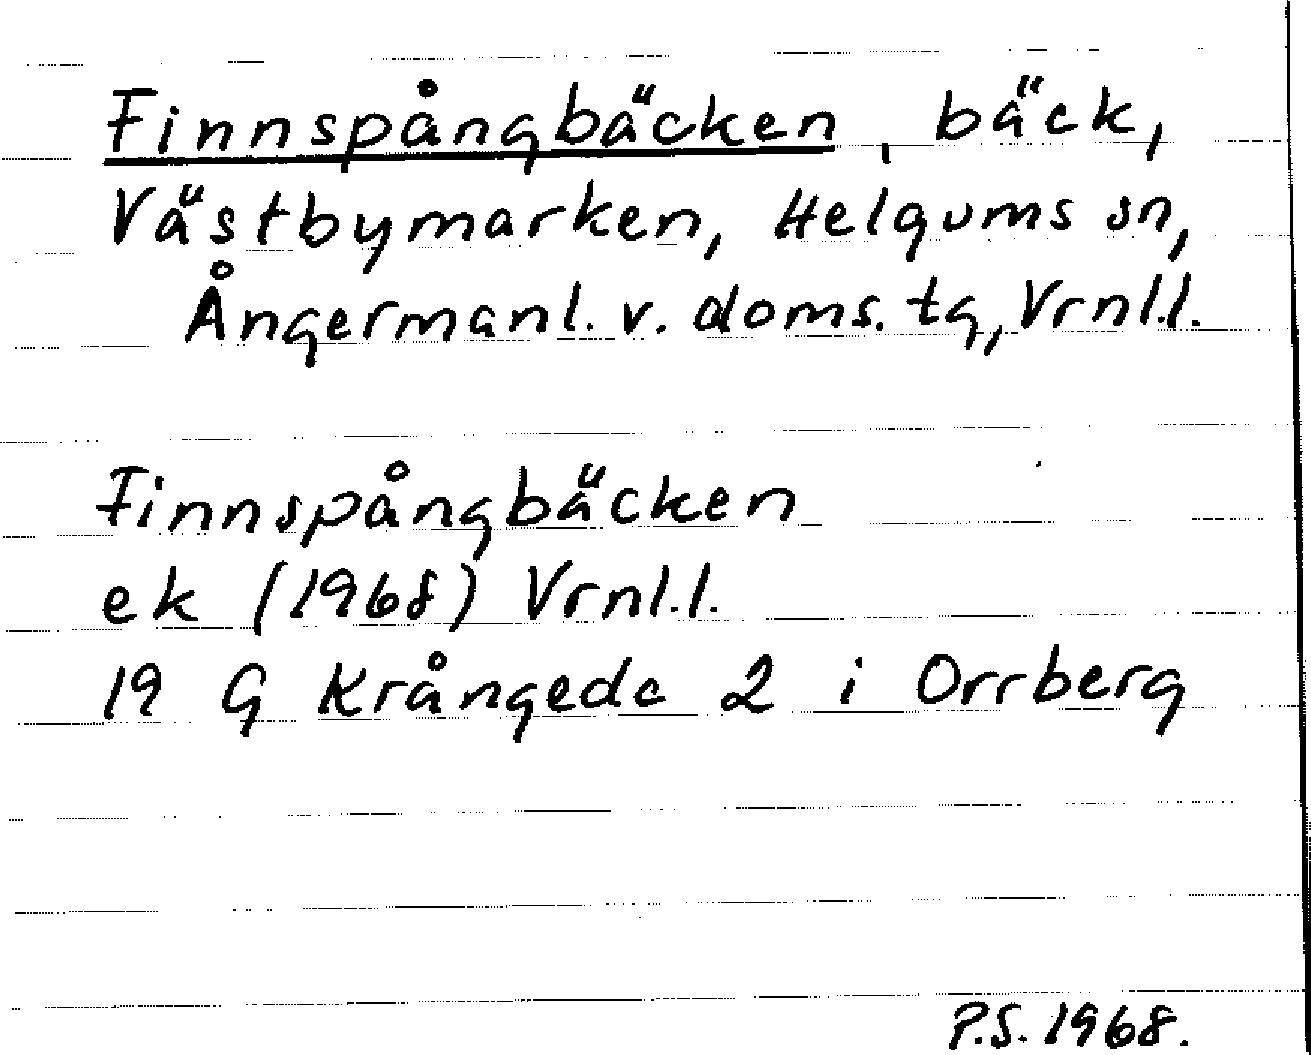 Finnspångbäcken, bäck,
Västbymarken, Helgums sn,
Ångermanl. v. doms. tg, Vrnl.l.
Finnspångbäcken
ek (1968) Vrnl.l.
19 G Krångede 2 i Orrberg
P.S. 1968.